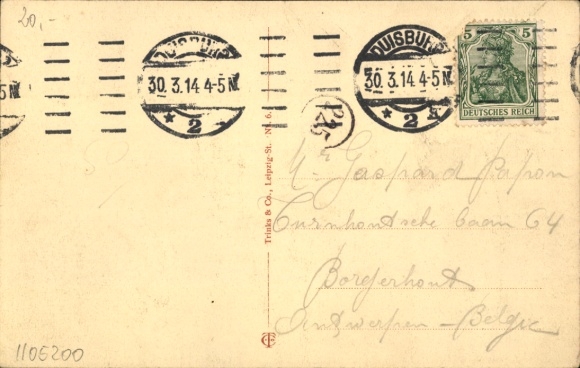 20,-
DUISBURG
30.3.14 4-5N
* 2
DUISBURG
30.3.14 4-5N
* 2 h
5 5
DEUTSCHES REICH
Trinks & Co., Leipzig-St. No. 6.
M. Gaspard Papon
Turnhoutsche baan 64
Borgerhout
Antwerpen - Belgie
1106200